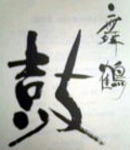 舞鶴
鼓